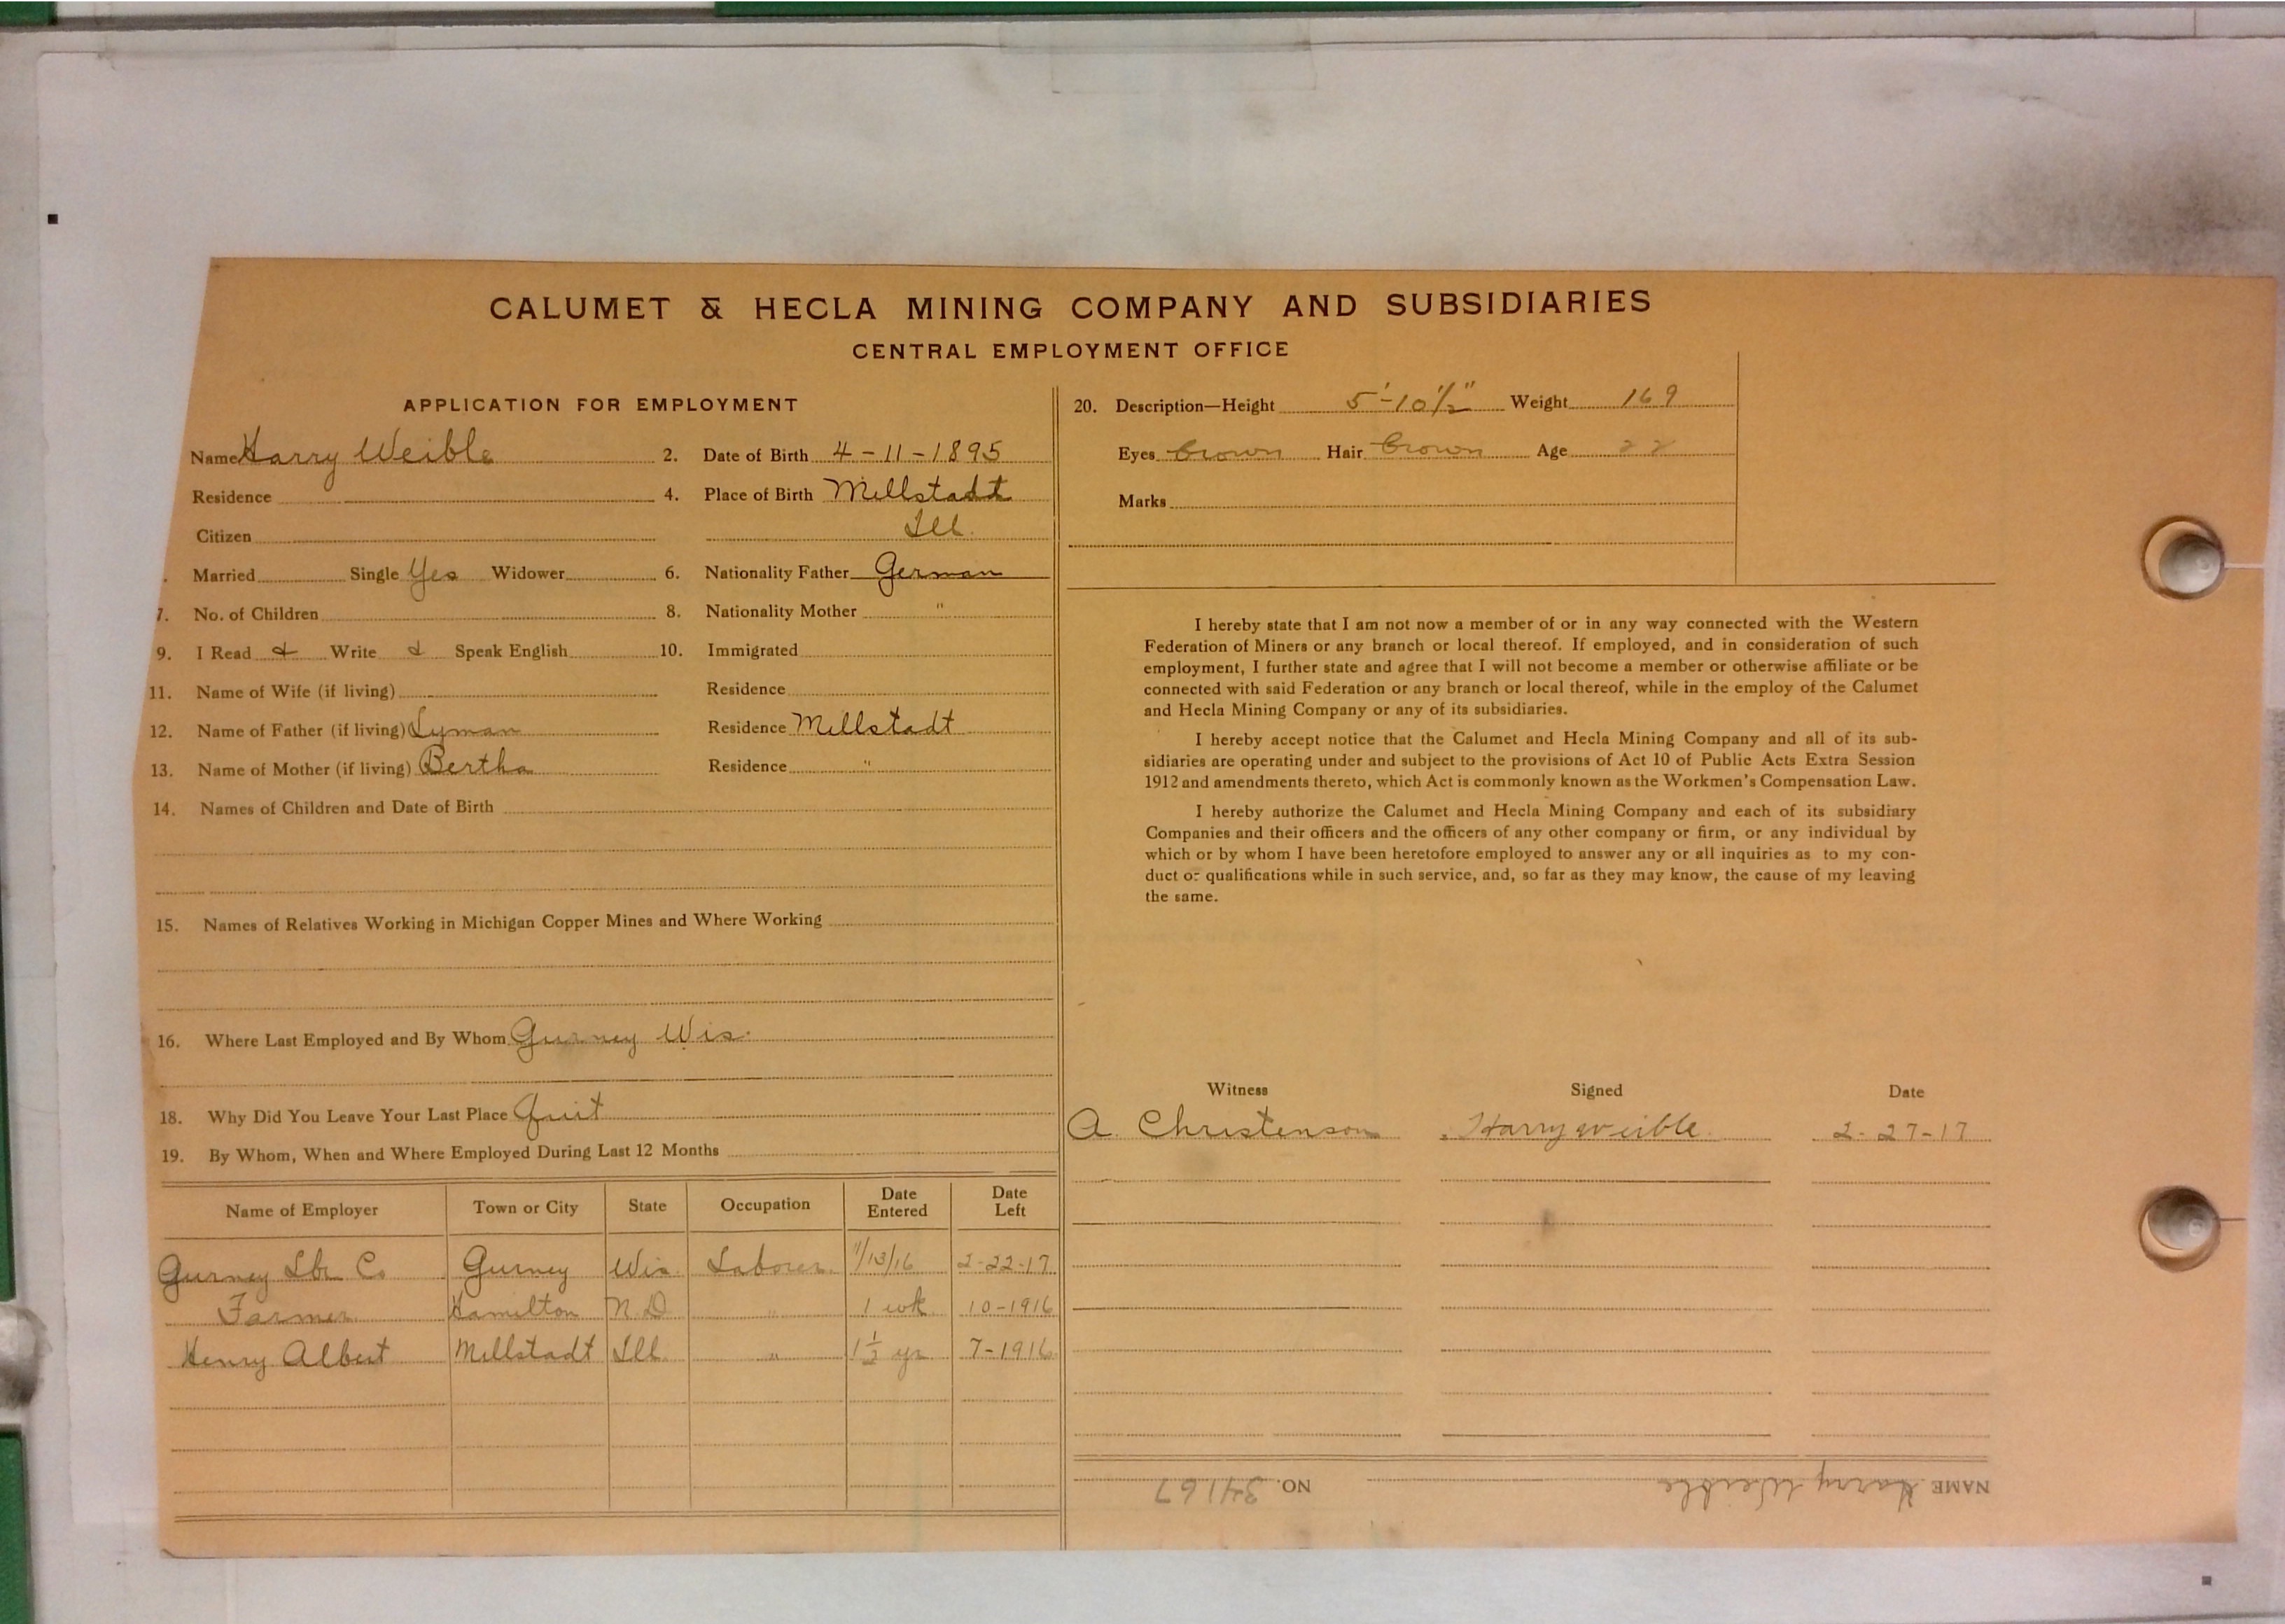 CALUMET & HECLA MINING COMPANY AND SUBSIDIARIES
CENTRAL EMPLOYMENT OFFICE
APPLICATION FOR EMPLOYMENT
Name Harry Weible 2. Date of Birth 4-11-1895
Residence 4. Place of Birth Millstadt
Citizen Ill.
Married Single Yes Widower 6. Nationality Father German
7. No. of Children 8. Nationality Mother "
9. I Read & Write & Speak English 10. Immigrated
11. Name of Wife (if living) Residence
12. Name of Father (if living) Lyman Residence Millstadt
13. Name of Mother (if living) Bertha Residence "
14. Names of Children and Date of Birth
15. Names of Relatives Working in Michigan Copper Mines and Where Working
16. Where Last Employed and By Whom Gurney Wis.
18. Why Did You Leave Your Last Place Quit
19. By Whom, When and Where Employed During Last 12 Months
Name of Employer Town or City State Occupation Date Entered Date Left
Gurney Lbr Co Gurney Wis. Laborer 11/13/16 2-22-17
Farmer Hamilton N.D. " 1 wk. 10-1916
Henry Albert Millstadt Ill. " 1 1/2 yr 7-1916
20. Description—Height 5'-10 1/2" Weight 169
Eyes brown Hair brown Age 22
Marks
I hereby state that I am not now a member of or in any way connected with the Western
Federation of Miners or any branch or local thereof. If employed, and in consideration of such
employment, I further state and agree that I will not become a member or otherwise affiliate or be
connected with said Federation or any branch or local thereof, while in the employ of the Calumet
and Hecla Mining Company or any of its subsidiaries.
I hereby accept notice that the Calumet and Hecla Mining Company and all of its sub-
sidiaries are operating under and subject to the provisions of Act 10 of Public Acts Extra Session
1912 and amendments thereto, which Act is commonly known as the Workmen's Compensation Law.
I hereby authorize the Calumet and Hecla Mining Company and each of its subsidiary
Companies and their officers and the officers of any other company or firm, or any individual by
which or by whom I have been heretofore employed to answer any or all inquiries as to my con-
duct or qualifications while in such service, and, so far as they may know, the cause of my leaving
the same.
Witness Signed Date
A. Christenson Harry weible 2-27-17
NAME Harry Weible NO. 34167